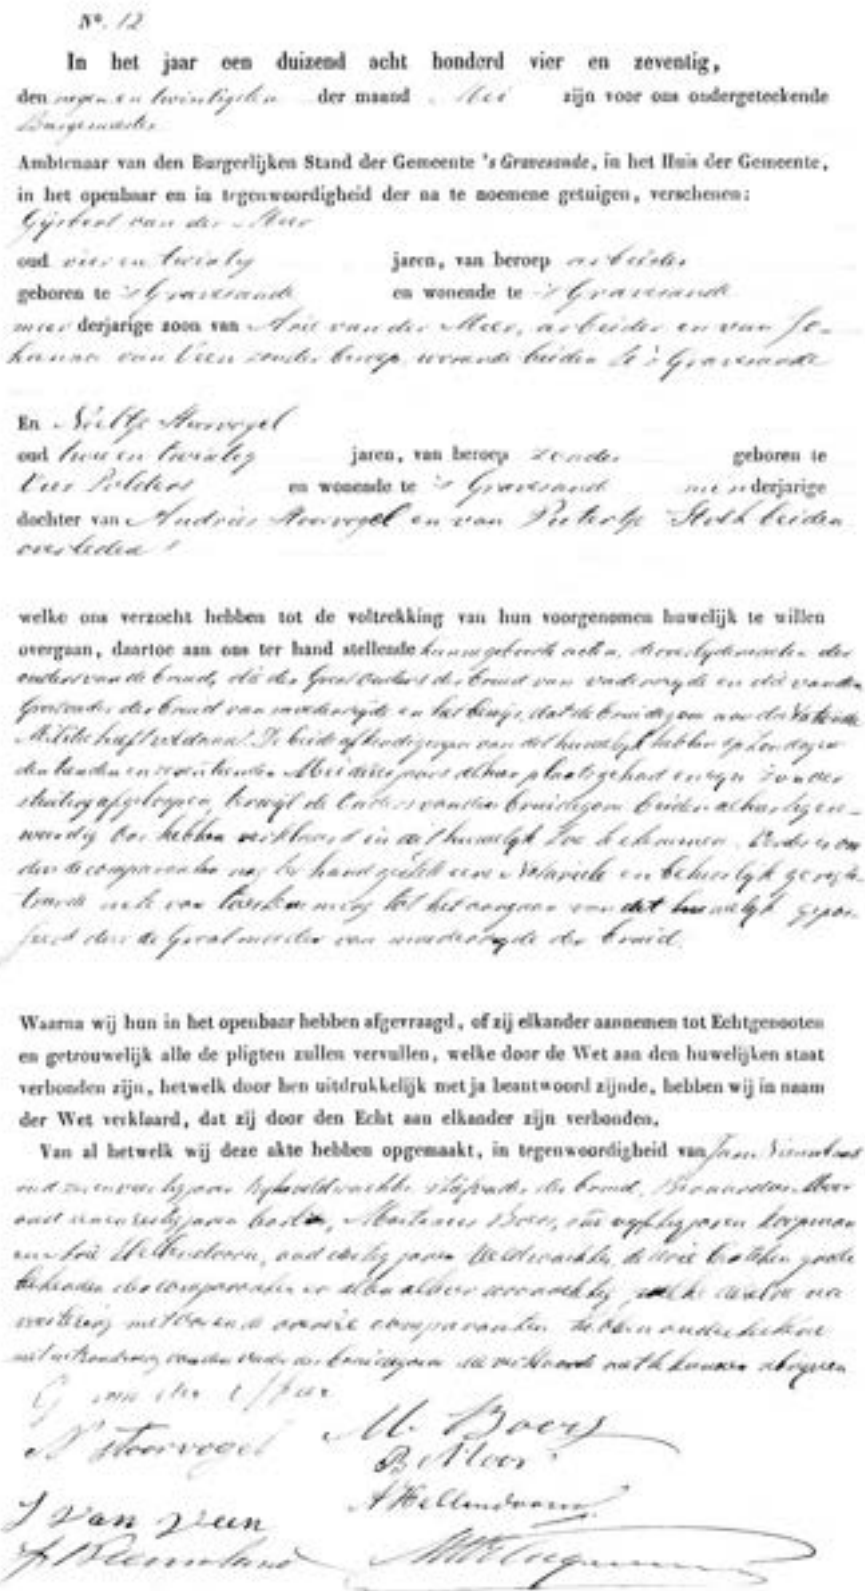 No. 12
In het jaar een duizend acht honderd vier en zeventig,
den negen en twintigsten der maand Mei zijn voor ons ondergeteekende
Burgemeester
Ambtenaar van den Burgerlijken Stand der Gemeente 's Gravesande, in het Huis der Gemeente,
in het openbaar en in tegenwoordigheid der na te noemene getuigen, verschenen:
Gijsbert van der Meer
oud vier en twintig jaren, van beroep arbeider
geboren te 's Gravesande en wonende te 's Gravesande
meerderjarige zoon van Arie van der Meer, arbeider en van Jo-
hanna van Veen zonder beroep, wonende beiden te 's Gravesande
En Neeltje Stoorvogel
oud twee en twintig jaren, van beroep zonder geboren te
Vier Polders en wonende te 's Gravesande minderjarige
dochter van Andries Stoorvogel en van Pietertje Stolk beiden
overleden
welke ons verzocht hebben tot de voltrekking van hun voorgenomen huwelijk te willen
overgaan, daartoe aan ons ter hand stellende hunne geboorte acten, de overlijdensacten der
ouders van de bruid, die der Grootouders der bruid van vaderszijde en die van den
Grootvader der bruid van moederszijde en het bewijs, dat de bruidegom aan de Nationale
Militie heeft voldaan. De beide afkondigingen van dit huwelijk hebben op Zondagen
den tienden en zeventienden Mei dezes jaars alhier plaats gehad en zijn zonder
stuiting afgeloopen, terwijl de Ouders van den bruidegom beiden alhier tegen-
woordig ons hebben verklaard in dit huwelijk toe te stemmen. Verder is ons
door de comparanten nog ter hand gesteld eene Notariele en behoorlijk geregis-
treerde acte van toestemming tot het aangaan van dit huwelijk gepas-
seerd door de Grootmoeder van moederszijde der bruid.
Waarna wij hun in het openbaar hebben afgevraagd, of zij elkander aannemen tot Echtgenooten
en getrouwelijk alle de pligten zullen vervullen, welke door de Wet aan den huwelijken staat
verbonden zijn, hetwelk door hen uitdrukkelijk met ja beantwoord zijnde, hebben wij in naam
der Wet verklaard, dat zij door den Echt aan elkander zijn verbonden.
Van al hetwelk wij deze akte hebben opgemaakt, in tegenwoordigheid van Jan
oud jaren stiefvader der bruid,
oud jaren Martinus Boers, oud vijftig jaren koopman
en Arie Hellendoorn, oud jaren Veldwachter, de drie laatsten goede
bekenden der comparanten en allen alhier woonachtig, welke deze na
voorlezing met ons en de comparanten hebben onderteekend
met uitzondering van den vader des bruidegoms die verklaarde niet te kunnen schrijven
G van der Meer
N Stoorvogel M. Boers
B Moor
A Hellendoorn
J van Veen